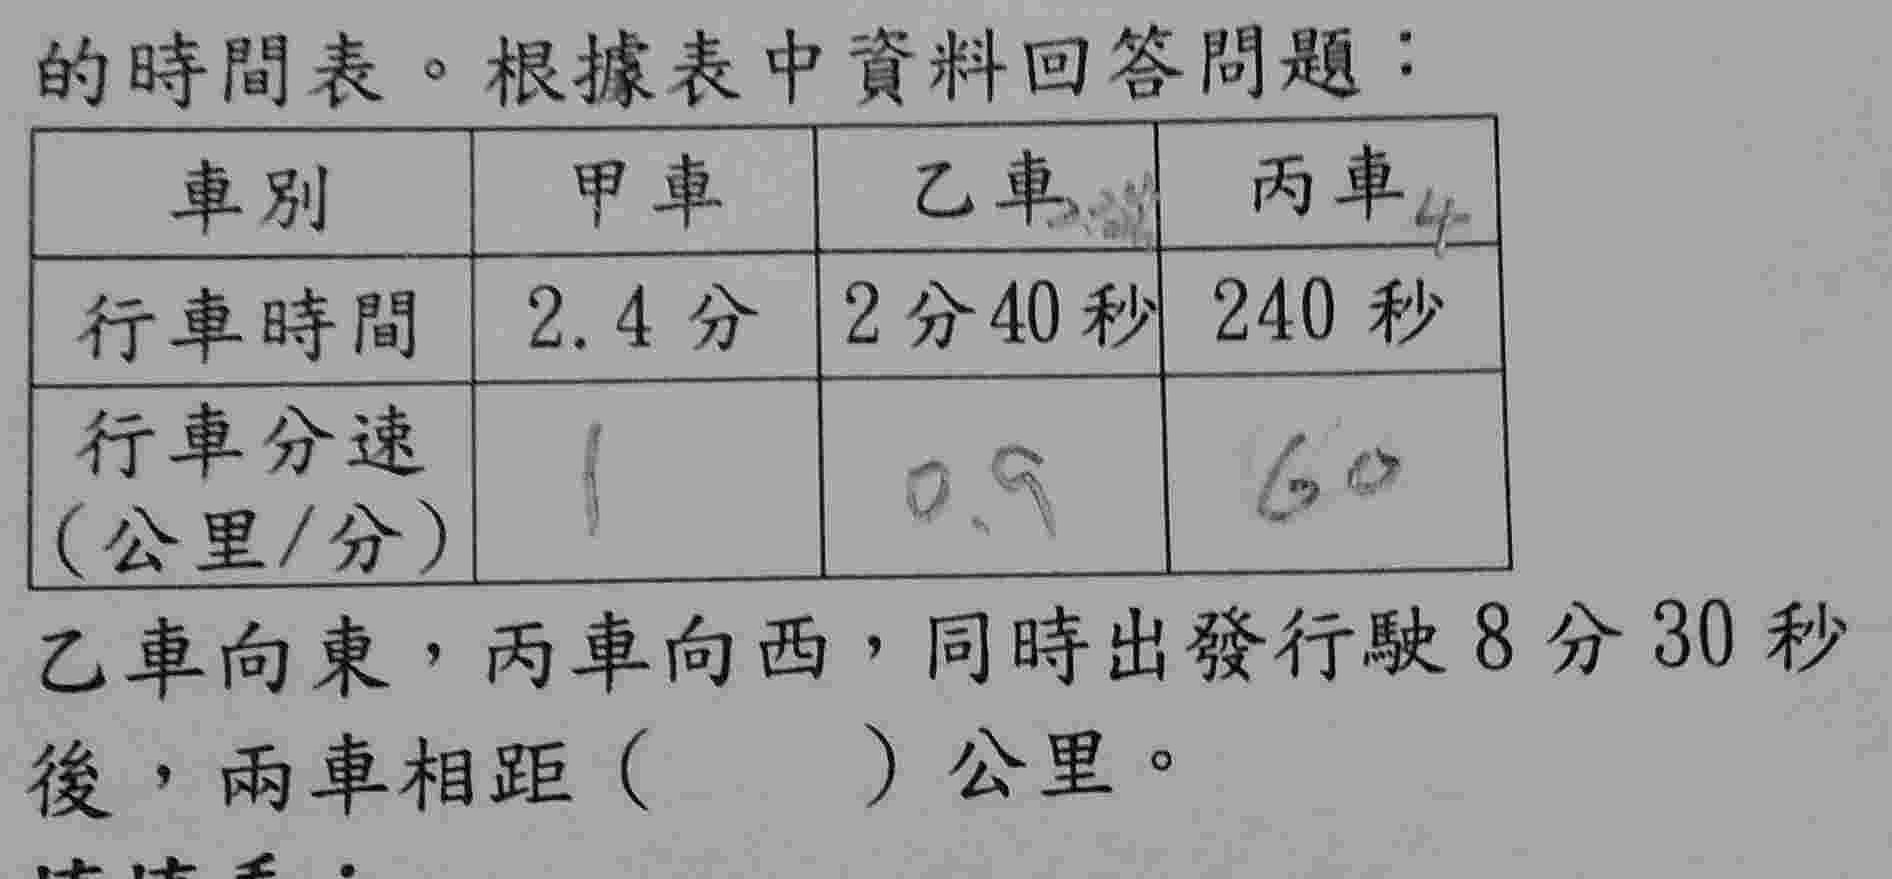 的時間表。根據表中資料回答問題：
車別 甲車 乙車 丙車 4
行車時間 2.4分 2分40秒 240秒
行車分速 1 0.9 60
(公里/分)
乙車向東，丙車向西，同時出發行駛8分30秒
後，兩車相距(　　)公里。